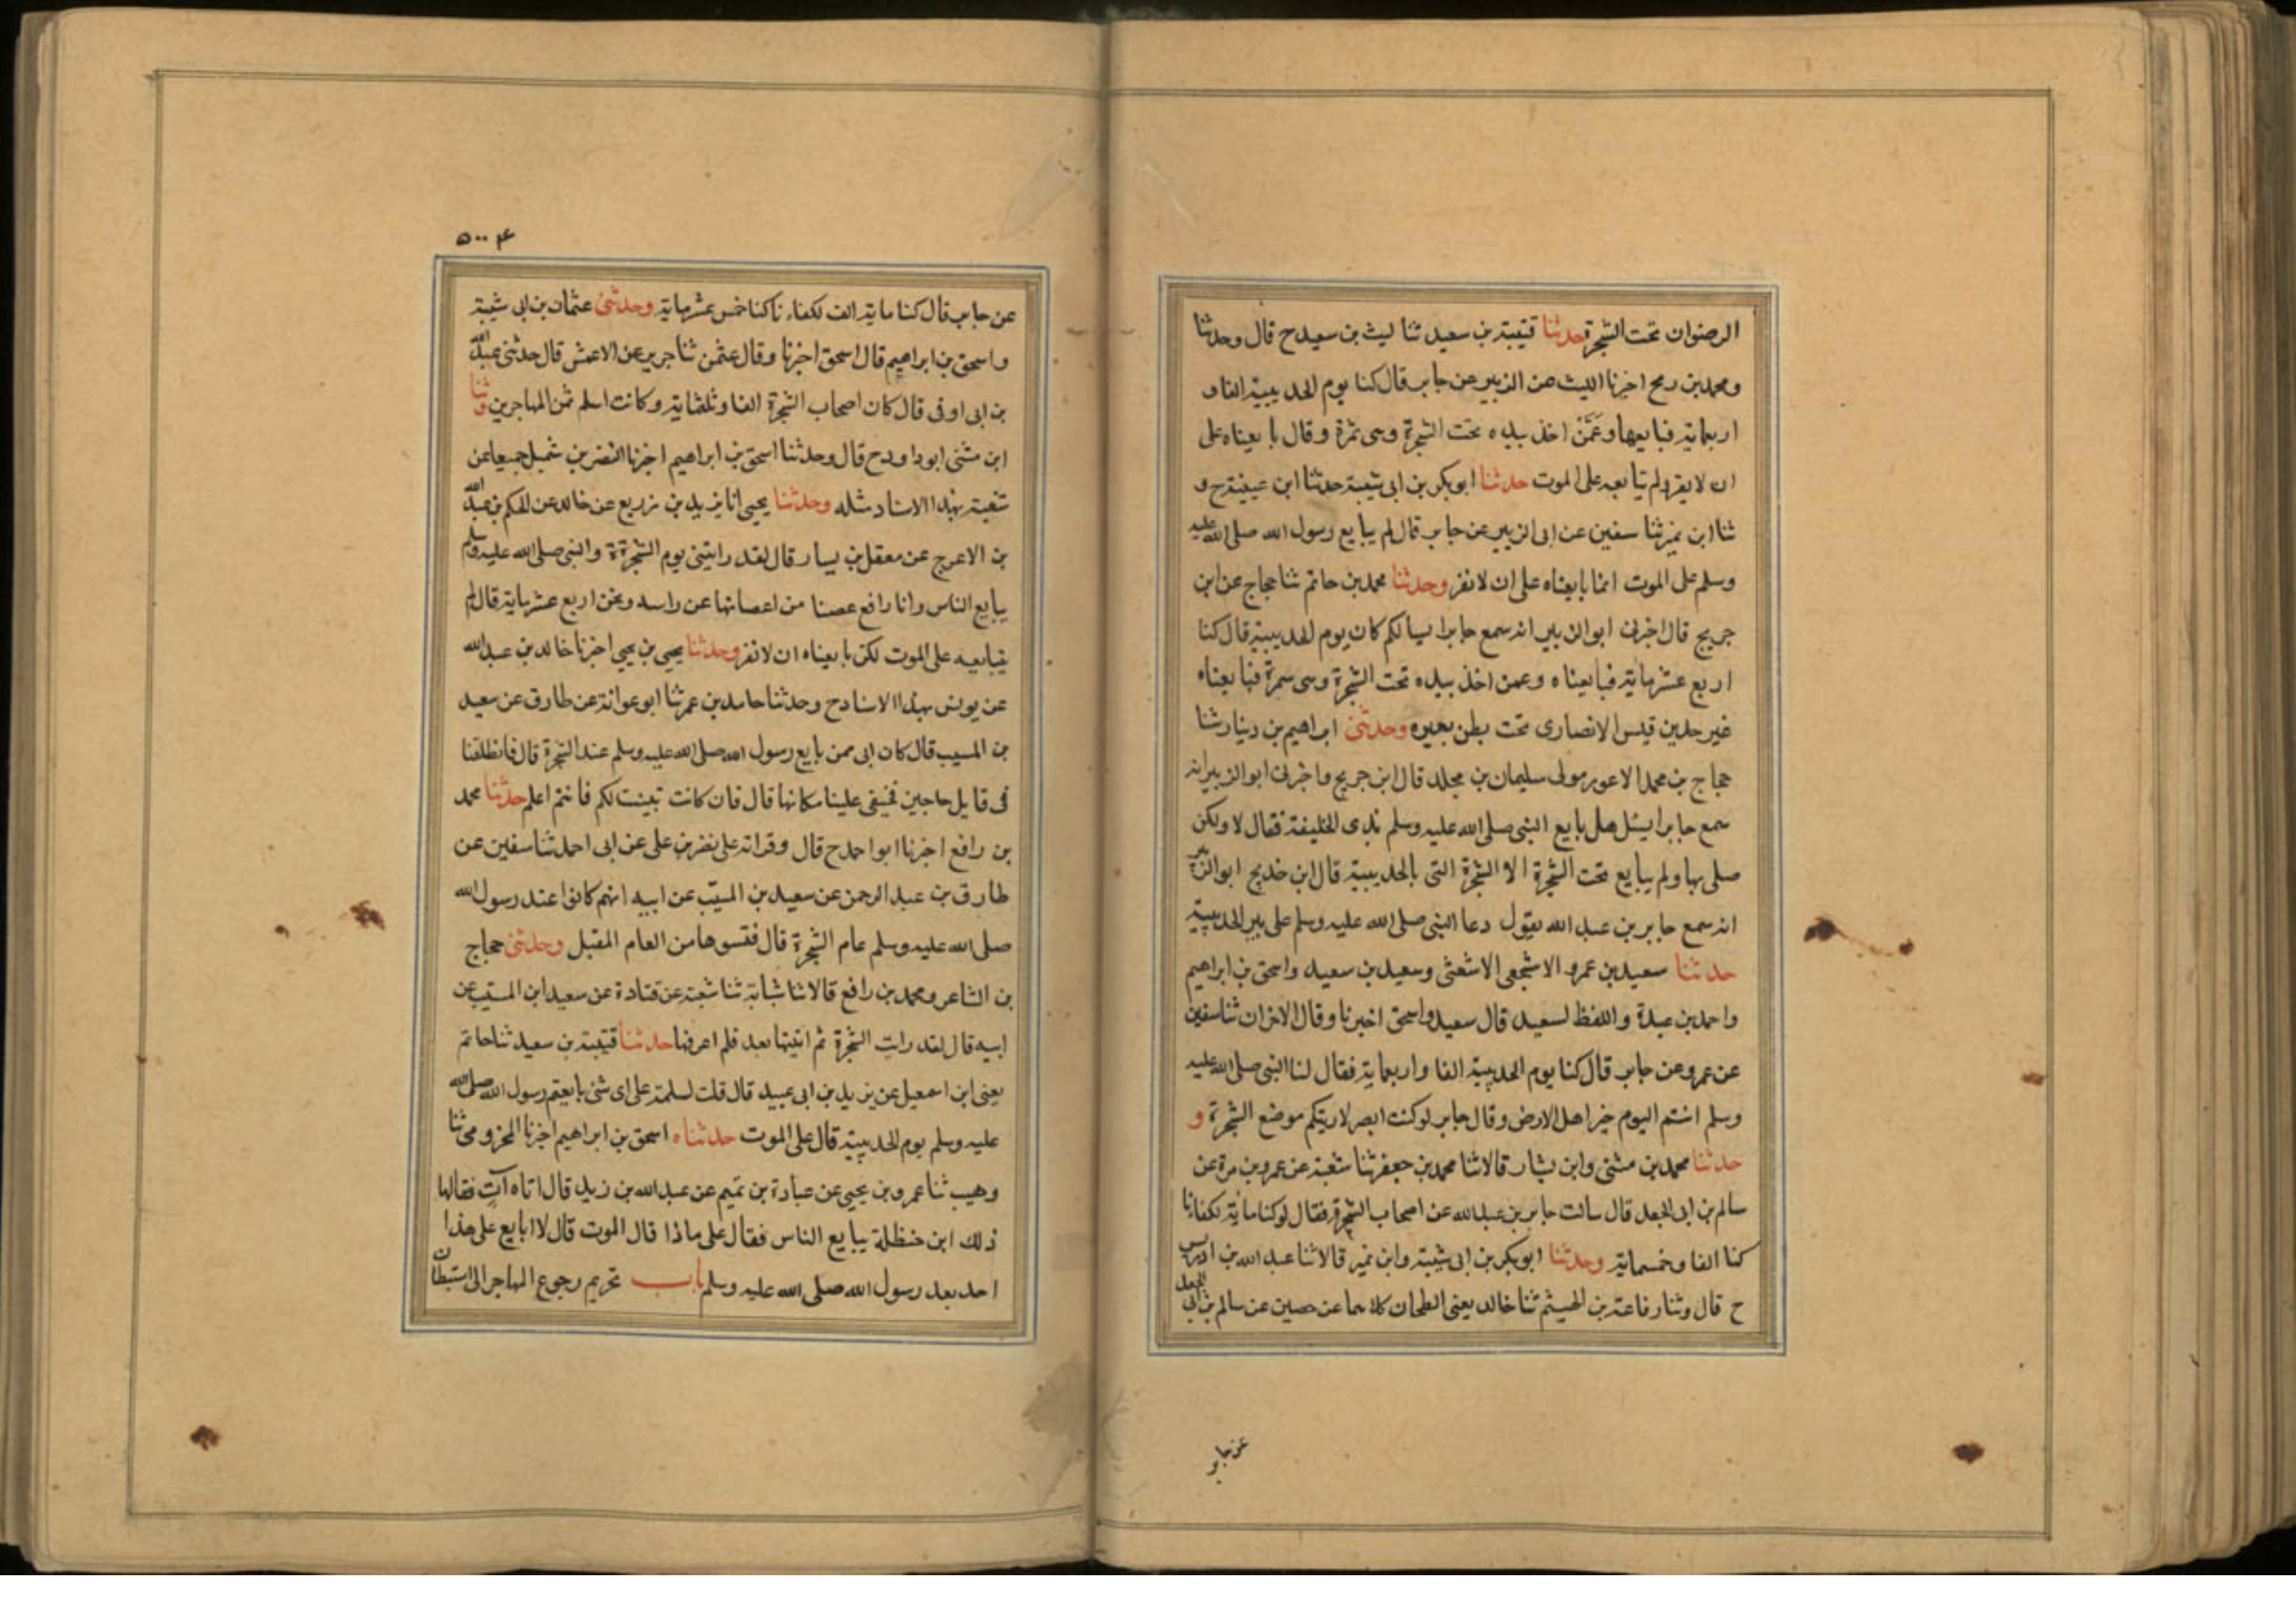 الرضوان تحت الشجرة حدثنا قتيبة بن سعيد ثنا ليث بن سعيد ح قال وحدثنا
ومحمد بن رمح اخبرنا الليث عن الزبير عن جابر قال كنا يوم الحديبية الفا و
اربعماية فبايعها وعمر اخذ بيده تحت الشجرة وهى ثمرة وقال بايعناه على
ان لا يفر ولم تبايعه على الموت حدثنا ابو بكر بن ابى شيبة حدثنا ابن عيينة ح و
ثنا ابن نمير ثنا سفين عن ابى الزبير عن جابر قال لم يبايع رسول الله صلى الله عليه
وسلم على الموت انما بايعناه على ان لا نفر وحدثنا محمد بن حاتم ثنا حجاج عن ابن
جريج قال اخبرنى ابو الزبير انه سمع جابرا يسالكم كان يوم الحديبية قال كنا
اربع عشرماية فبايعناه وعمن اخذ بيده تحت الشجرة وهى سمرة فبايعناه
غير جد بن قيس الانصارى تحت بطن بعيره وحدثنى ابراهيم بن دينار ثنا
حجاج بن محمد الاعور مولى سليمان بن مجلد قال ابن جريج واخبرنى ابو الزبير انه
سمع جابرا يسئل هل بايع النبى صلى الله عليه وسلم بذى الخليفة فقال لا ولكن
صلى بها ولم يبايع تحت الشجرة الا الشجرة التى بالحديبية قال ابن خديج ابو الزبير
انه سمع جابر بن عبد الله يقول دعا النبى صلى الله عليه وسلم على بير الحديبية
حدثنا سعيد بن عمرو الاشجعى الاشعثى وسعيد بن سعيد واسحق بن ابراهيم
واحمد بن عبدة واللفظ لسعيد قال سعيد واسحق اخبرنا وقال الاخران ثنا سفين
عن عمرو عن جابر قال كنا يوم الحديبية الفا واربعماية فقال لنا النبى صلى الله عليه
وسلم انتم اليوم خير اهل الارض وقال جابر لو كنت ابصر لاريتكم موضع الشجرة و
حدثنا محمد بن مثنى وابن بشار قالا ثنا محمد بن جعفر ثنا شعبة عن عمرو بن مرة عن
سالم بن ابى الجعد قال سالت جابر بن عبد الله عن اصحاب الشجرة فقال لو كنا ماية لكفانا
كنا الفا وخمسماية وحدثنا ابو بكر بن ابى شيبة وابن نمير قالا ثنا عبد الله بن ادريس
ح قال وثنا رفاعة بن الهيثم ثنا خالد يعنى الطحان كلاهما عن حصين عن سالم بن ابى الجعد
عن جابر
۵۰۰
عن جابر قال كنا ماية الف لكفانا كنا خمس عشرماية وحدثنى عثمان بن ابى شيبة
واسحق بن ابراهيم قال اسحق اخبرنا وقال عثمن ثنا جرير عن الاعمش قال حدثنى عبد الله
بن ابى اوفى قال كان اصحاب الشجرة الفا وثلثماية وكانت اسلم ثمن المهاجرين وثنا
ابن مثنى ابو داود ح قال وحدثنا اسحق بن ابراهيم اخبرنا النضر بن شميل جميعا عن
شعبة بهذا الاسناد مثله وحدثنا يحيى انا يزيد بن زريع عن خالد عن الحكم بن عبد الله
بن الاعرج عن معقل بن يسار قال لقد رايتنى يوم الشجرة والنبى صلى الله عليه وسلم
يبايع الناس وانا رافع غصنا من اغصانها عن راسه ونحن اربع عشرماية قال لم
يبايعه على الموت لكن بايعناه ان لا نفر وحدثنا يحيى بن يحيى اخبرنا خالد بن عبد الله
عن يونس بهذا الاسناد ح وحدثنا حامد بن عمر ثنا ابو عوانة عن طارق عن سعيد
بن المسيب قال كان ابى ممن بايع رسول الله صلى الله عليه وسلم عند الشجرة قال فانطلقنا
فى قابل حاجين فخفى علينا مكانها قال فان كانت تبينت لكم فانتم اعلم حدثنا محمد
بن رافع اخبرنا ابو احمد ح قال وقراته على نصر بن على عن ابى احمد ثنا سفين عن
طارق بن عبد الرحمن عن سعيد بن المسيب عن ابيه انهم كانوا عند رسول الله
صلى الله عليه وسلم عام الشجرة قال فنسوها من العام المقبل وحدثنى حجاج
بن الشاعر ومحمد بن رافع قالا ثنا شبابة ثنا شعبة عن قتادة عن سعيد ابن المسيب عن
ابيه قال لقد رايت الشجرة ثم اتيتها بعد فلم اعرفها حدثنا قتيبة بن سعيد ثنا حاتم
يعنى ابن اسمعيل عن يزيد بن ابى عبيد قال قلت لسلمة على اى شئ بايعتم رسول الله صلى الله
عليه وسلم يوم الحديبية قال على الموت حدثناه اسحق بن ابراهيم اخبرنا المخزومى ثنا
وهيب ثنا عمرو بن يحيى عن عبادة بن تميم عن عبد الله بن زيد قال اتاه آت فقالها
ذلك ابن حنظلة يبايع الناس فقال على ماذا قال الموت قال لا ابايع على هذا
احد بعد رسول الله صلى الله عليه وسلم باب تحريم رجوع المهاجر الى استيطان